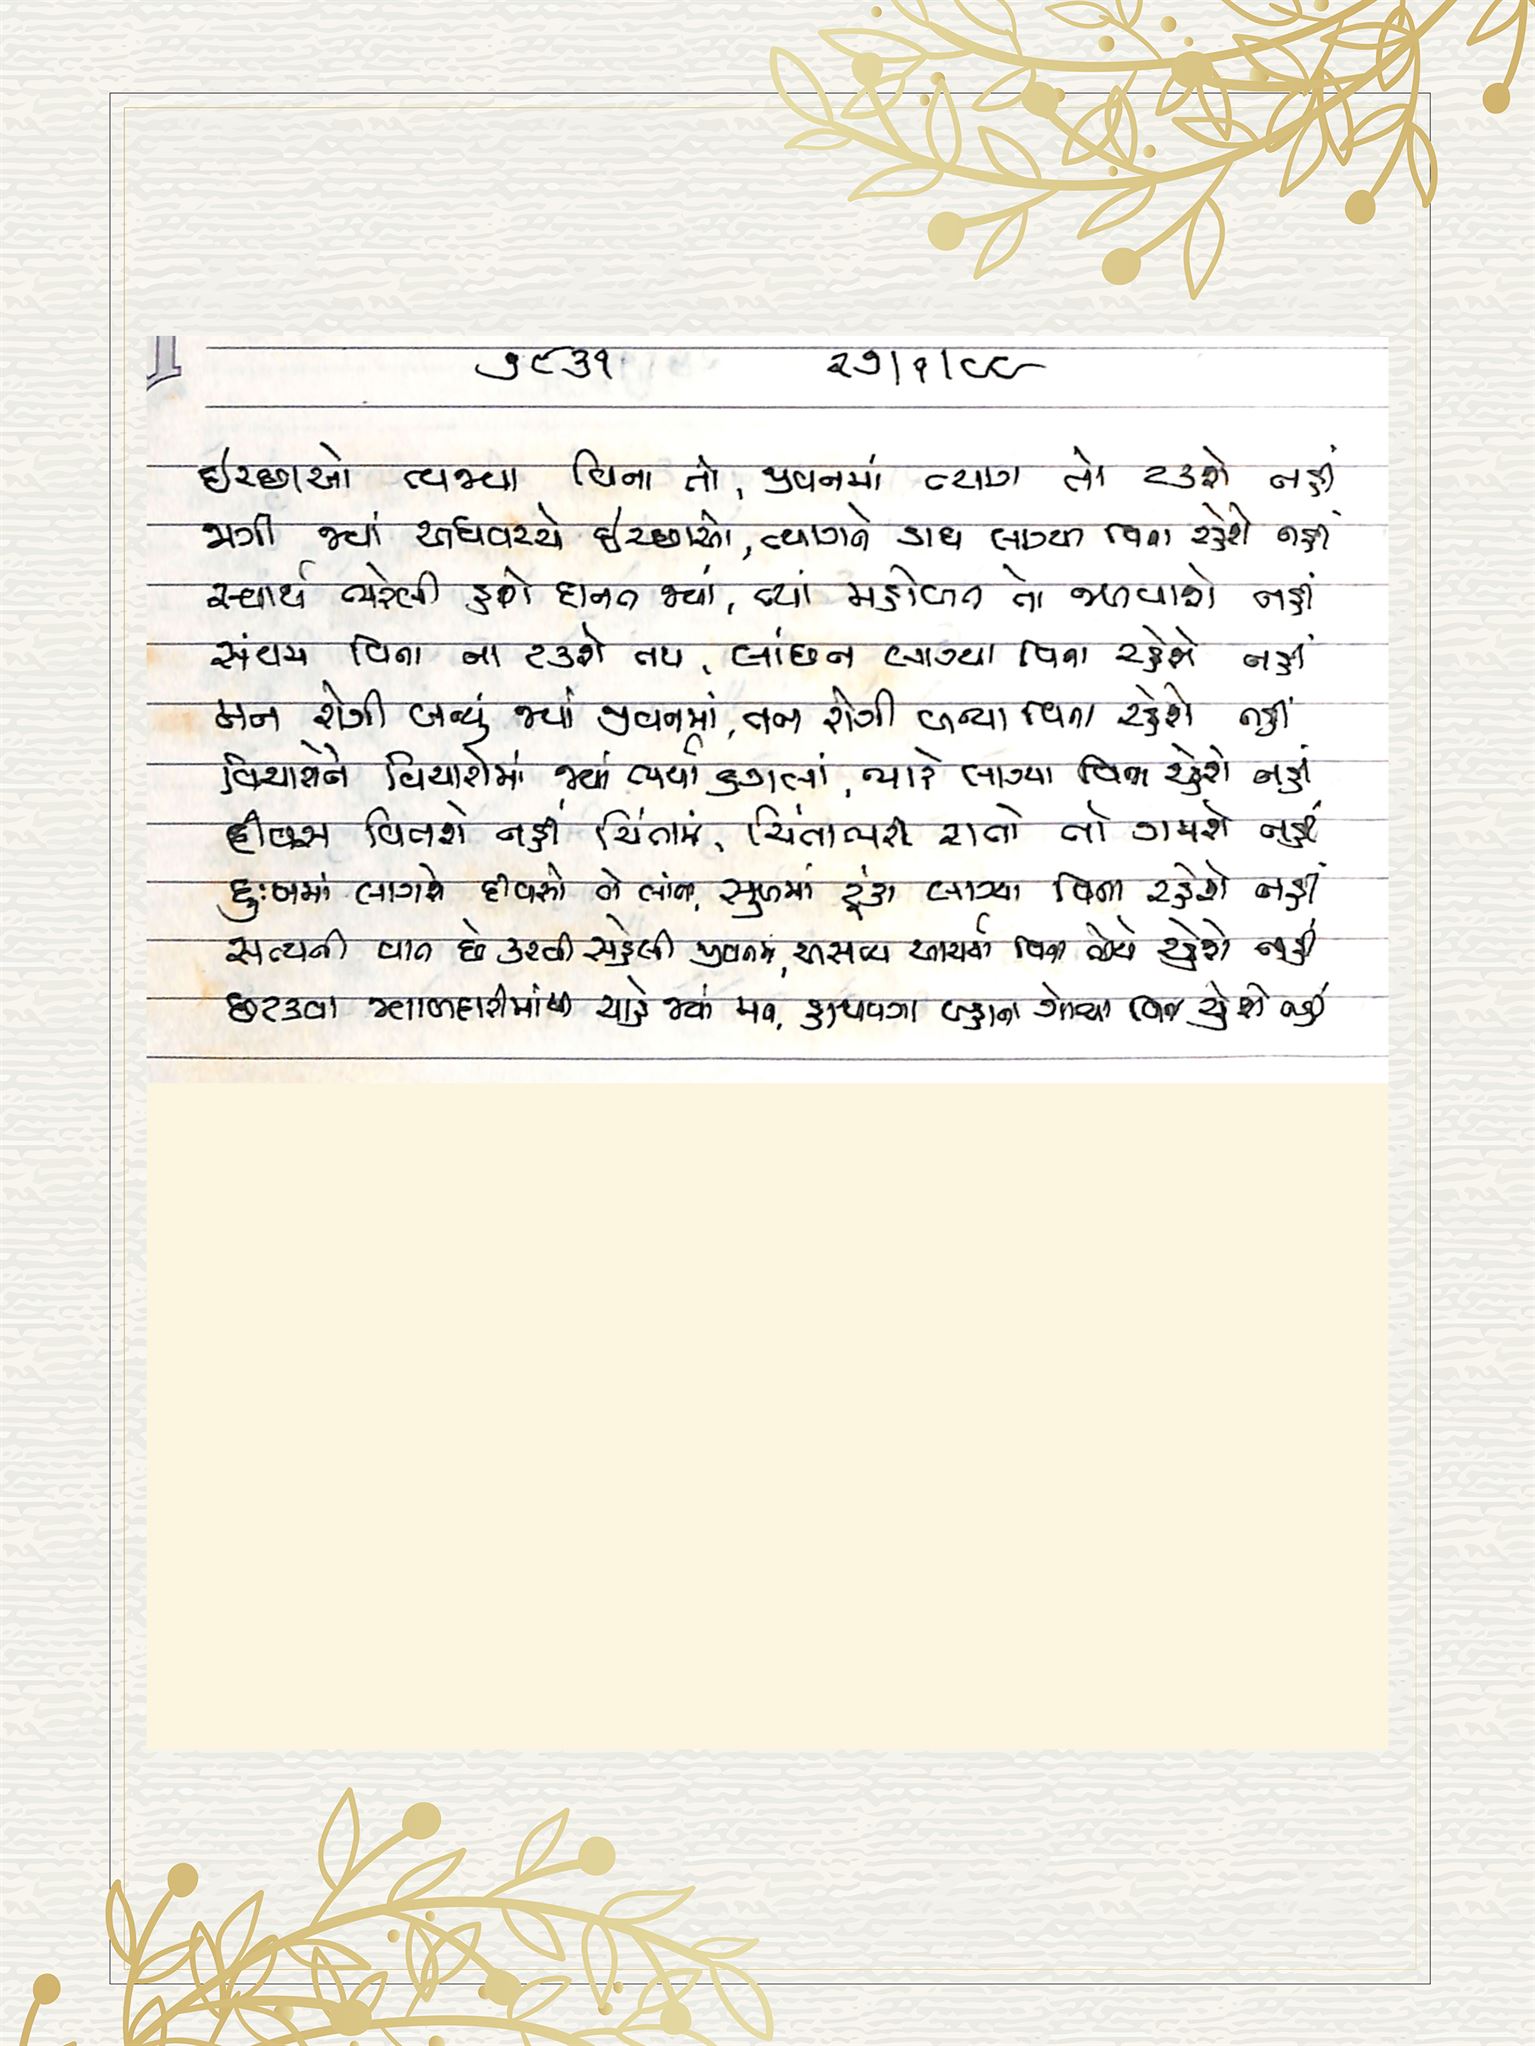 ૭૯૩૧ ૨૭/૧/૯૯
ઈચ્છાઓ ત્યજ્યા વિના તો, જીવનમાં ત્યાગ તો ટકશે નહીં
જાગી જ્યાં અધવચ્ચે ઈચ્છાઓ, ત્યાગને ડાઘ લાગ્યા વિના રહેશે નહીં
સ્વાર્થ ભરેલી હશે દાનત જ્યાં, ત્યાં મહોબત તો જળવાશે નહીં
સંયમ વિના ના ટકશે તપ, લાંછન લાગ્યા વિના રહેશે નહીં
મન રોગી બન્યું જ્યાં જીવનમાં, તન રોગી બન્યા વિના રહેશે નહીં
વિચારોને વિચારોમાં જ્યાં ભર્યા ડગલાં, ભારે લાગ્યા વિના રહેશે નહીં
દીવસ વિતશે નહીં ચિંતામાં, ચિંતાભરી રાતો તો ગમશે નહીં
દુઃખમાં લાગશે દીવસો તો લાંબા, સુખમાં ટૂંકા લાગ્યા વિના રહેશે નહીં
સત્યની વાત છે કરવી સહેલી જીવનમાં, અસત્ય આચર્યા વિના તોયે રહેશે નહીં
છટકવા જવાબદારીમાંથી ચાહે જ્યાં મન, હાથવગા બહાના ગોત્યા વિના રહેશે નહીં